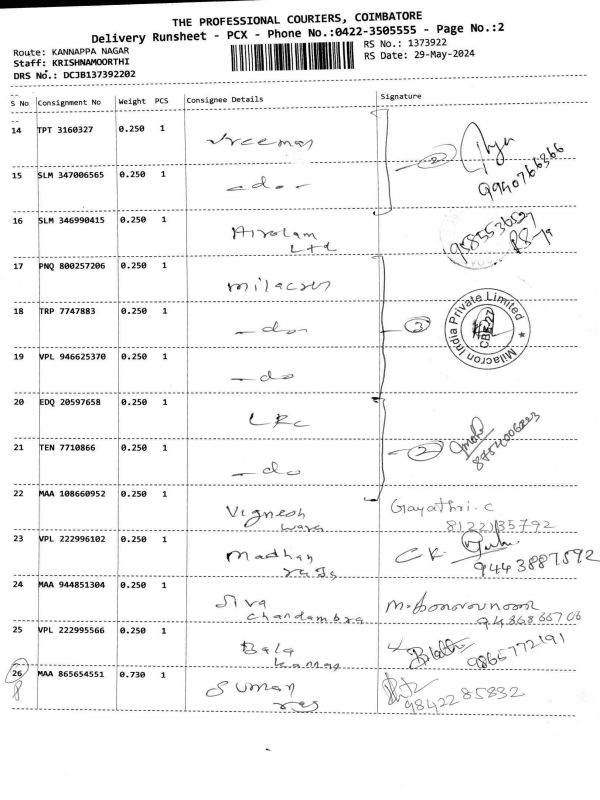 THE PROFESSIONAL COURIERS, COIMBATORE
Delivery Runsheet - PCX - Phone No.:0422-3505555 - Page No.:2
Route: KANNAPPA NAGAR
Staff: KRISHNAMOORTHI
DRS No.: DCJB137392202
RS No.: 1373922
RS Date: 29-May-2024
S No Consignment No Weight PCS Consignee Details Signature
14 TPT 3160327 0.250 1
2
9940766366
15 SLM 347006565 0.250 1 -do-
16 SLM 346990415 0.250 1
Ltd
17 PNQ 800257206 0.250 1 milacron
18 TRP 7747883 0.250 1 -do-
3
Milacron India Private Limited
CBE-27
19 VPL 946625370 0.250 1 -do
20 EDQ 20597658 0.250 1 LRC
21 TEN 7710866 0.250 1 -do
2
22 MAA 108660952 0.250 1 Vignesh
Gayathri.c
8122135792
23 VPL 222996102 0.250 1 Madhan
C.K.
9443887592
24 MAA 944851304 0.250 1 Siva
25 VPL 222995566 0.250 1 Bala
9865772191
26 MAA 865654551 0.730 1 Suman
9842285832